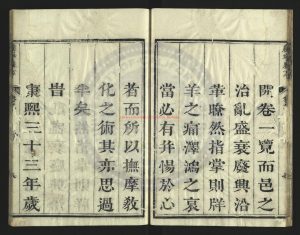 開卷一覽而邑之
治亂盛衰廢興沿
革瞭然指掌則牂
羊之痛澤鴻之哀
當必有幷惕於心
者而所以撫摩教
化之術其亦思過
半矣
旹
康熙三十三年歲